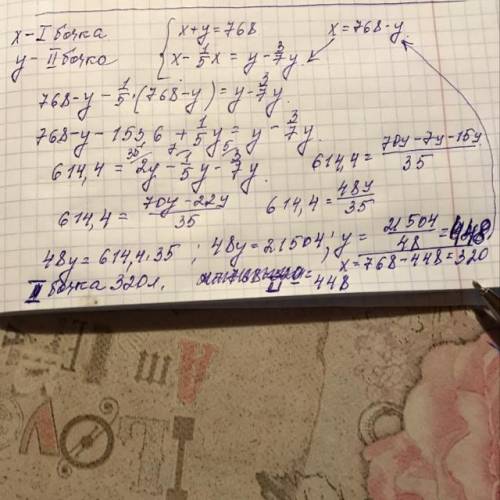 x - I бочка { x+y=768   x=768-y
y - II бочка { x - 1/5 x = y - 3/7 y
768-y - 1/5 · (768-y) = y - 3/7 y
768-y - 153 6 + 1/5 y = y - 3/7 y
614,4 = 2y - 1/5 y - 3/7 y   614,4 = (70y-7y-15y)/35
614,4 = (70y-22y)/35   614,4 = 48y/35
48y = 614,4·35 ; 48y = 21504 ; y = 21504/48 = 448
x = 768-448 = 320
II бочка 320л, = 448